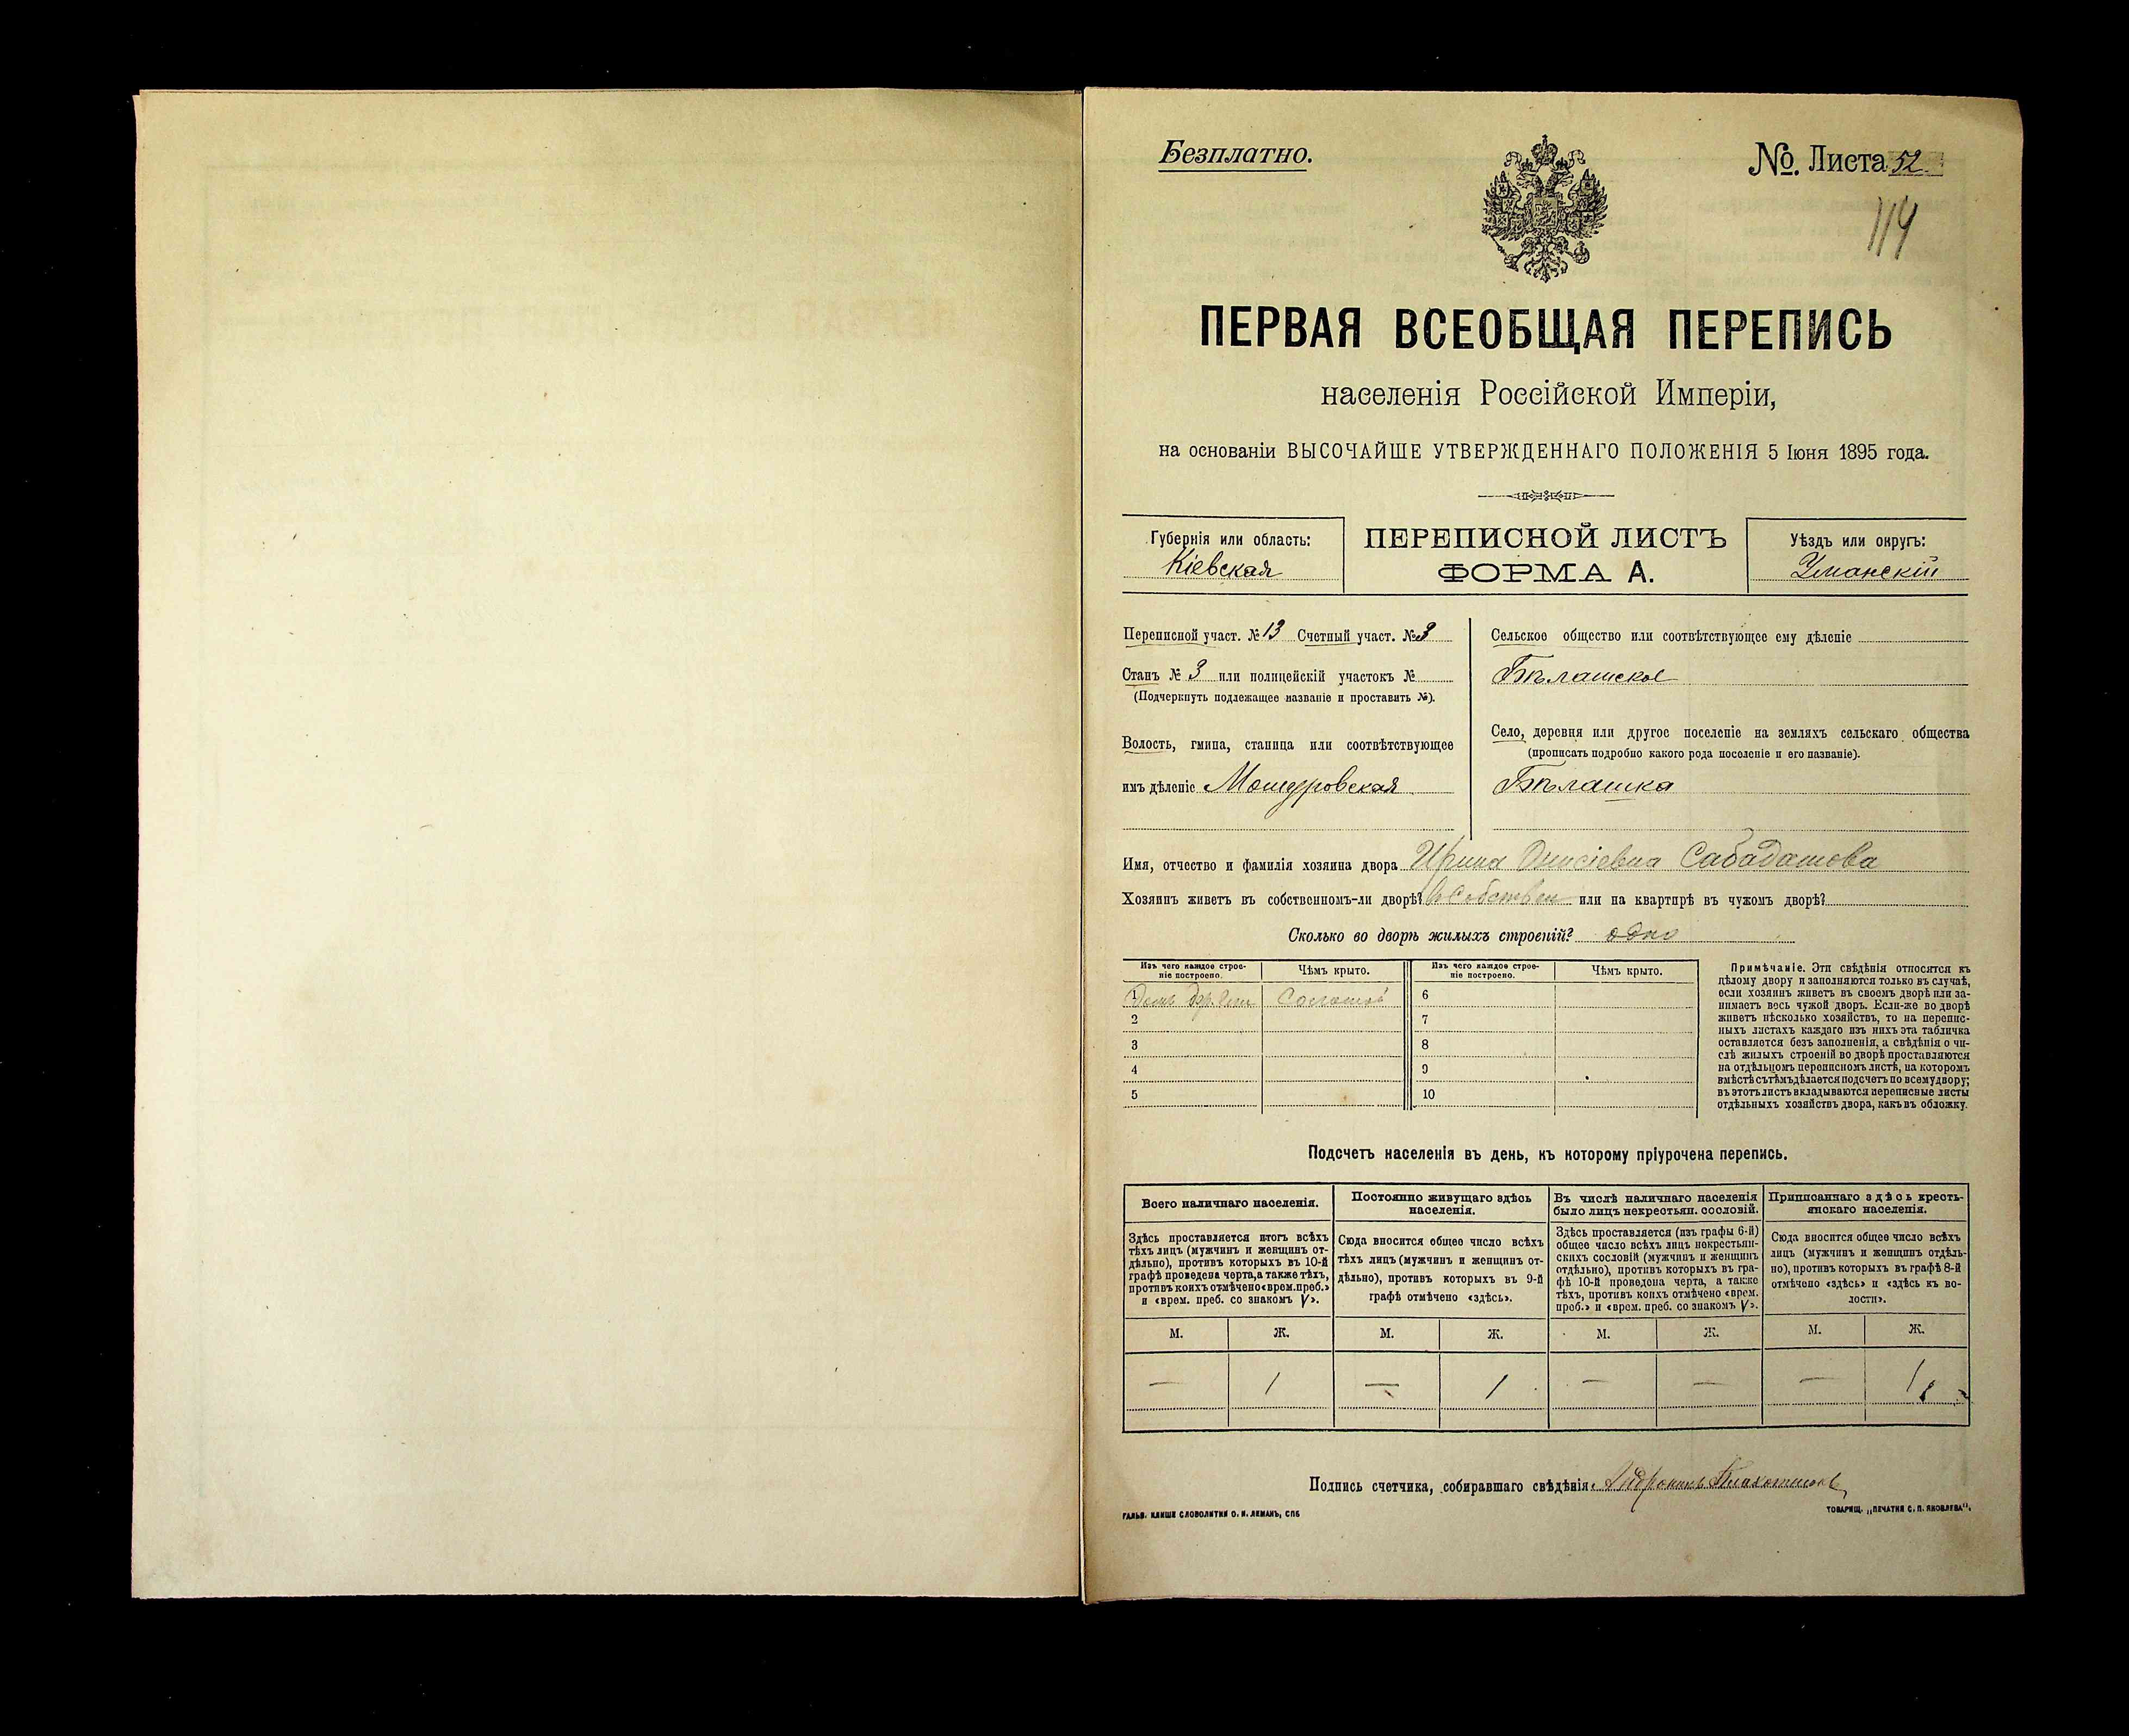 Безплатно.
№. Листа 52
114
ПЕРВАЯ ВСЕОБЩАЯ ПЕРЕПИСЬ
населенія Россійской Имперіи,
на основаніи ВЫСОЧАЙШЕ УТВЕРЖДЕННАГО ПОЛОЖЕНІЯ 5 Іюня 1895 года.
Губернія или область:
Кіевская
ПЕРЕПИСНОЙ ЛИСТЪ
ФОРМА А.
Уѣздъ или округъ:
Уманскій
Переписной участ. № 13 Счетный участ. № 3
Станъ № 3 или полицейскій участокъ №
(Подчеркнуть подлежащее названіе и проставить №).
Волость, гмина, станица или соотвѣтствующее
имъ дѣленіе
Сельское общество или соотвѣтствующее ему дѣленіе
Бѣлашское
Село, деревня или другое поселеніе на земляхъ сельскаго общества
(прописать подробно какого рода поселеніе и его названіе).
Бѣлашка
Имя, отчество и фамилія хозяина двора Ирина Онисіевна Сабадашова
Хозяинъ живетъ въ собственномъ-ли дворѣ? в собствен или на квартирѣ въ чужомъ дворѣ?
Сколько во дворѣ жилыхъ строеній? одно
Изъ чего каждое строе-
ніе построено.
Чѣмъ крыто.
Изъ чего каждое строе-
ніе построено.
Чѣмъ крыто.
1 Соломой 6
2 7
3 8
4 9
5 10
Примѣчаніе. Эти свѣдѣнія относятся къ
цѣлому двору и заполняются только въ случаѣ,
если хозяинъ живетъ въ своемъ дворѣ или за-
нимаетъ весь чужой дворъ. Если-же во дворѣ
живетъ нѣсколько хозяйствъ, то на перепис-
ныхъ листахъ каждаго изъ нихъ эта табличка
оставляется безъ заполненія, а свѣдѣнія о чи-
слѣ жилыхъ строеній во дворѣ проставляются
на отдѣльномъ переписномъ листѣ, на которомъ
вмѣстѣ съ тѣмъ дѣлается подсчетъ по всему двору;
въ этотъ листъ вкладываются переписные листы
отдѣльныхъ хозяйствъ двора, какъ въ обложку.
Подсчетъ населенія въ день, къ которому пріурочена перепись.
Всего наличнаго населенія.
Здѣсь проставляется итогъ всѣхъ
тѣхъ лицъ (мужчинъ и женщинъ от-
дѣльно), противъ которыхъ въ 10-й
графѣ проведена черта, а также тѣхъ,
противъ коихъ отмѣчено «врем. преб.»
и «врем. преб. со знакомъ V».
Постоянно живущаго здѣсь
населенія.
Сюда вносится общее число всѣхъ
тѣхъ лицъ (мужчинъ и женщинъ от-
дѣльно), противъ которыхъ въ 9-й
графѣ отмѣчено «здѣсь».
Въ числѣ наличнаго населенія
было лицъ некрестьян. сословій.
Здѣсь проставляется (изъ графы 6-й)
общее число всѣхъ лицъ некрестьян-
скихъ сословій (мужчинъ и женщинъ
отдѣльно), противъ которыхъ въ гра-
фѣ 10-й проведена черта, а также
тѣхъ, противъ коихъ отмѣчено «врем.
преб.» и «врем. преб. со знакомъ V».
Приписаннаго здѣсь кресть-
янскаго населенія.
Сюда вносится общее число всѣхъ
лицъ (мужчинъ и женщинъ отдѣль-
но), противъ которыхъ въ графѣ 8-й
отмѣчено «здѣсь» и «здѣсь къ во-
лости».
М. Ж. М. Ж. М. Ж. М. Ж.
— 1 — 1 — — — 1
Подпись счетчика, собиравшаго свѣдѣнія
ГАЛЬВ. КЛИШЕ СЛОВОЛИТНИ О. И. ЛЕМАНЪ, СПБ
ТОВАРИЩ. „ПЕЧАТНЯ С. П. ЯКОВЛЕВА".